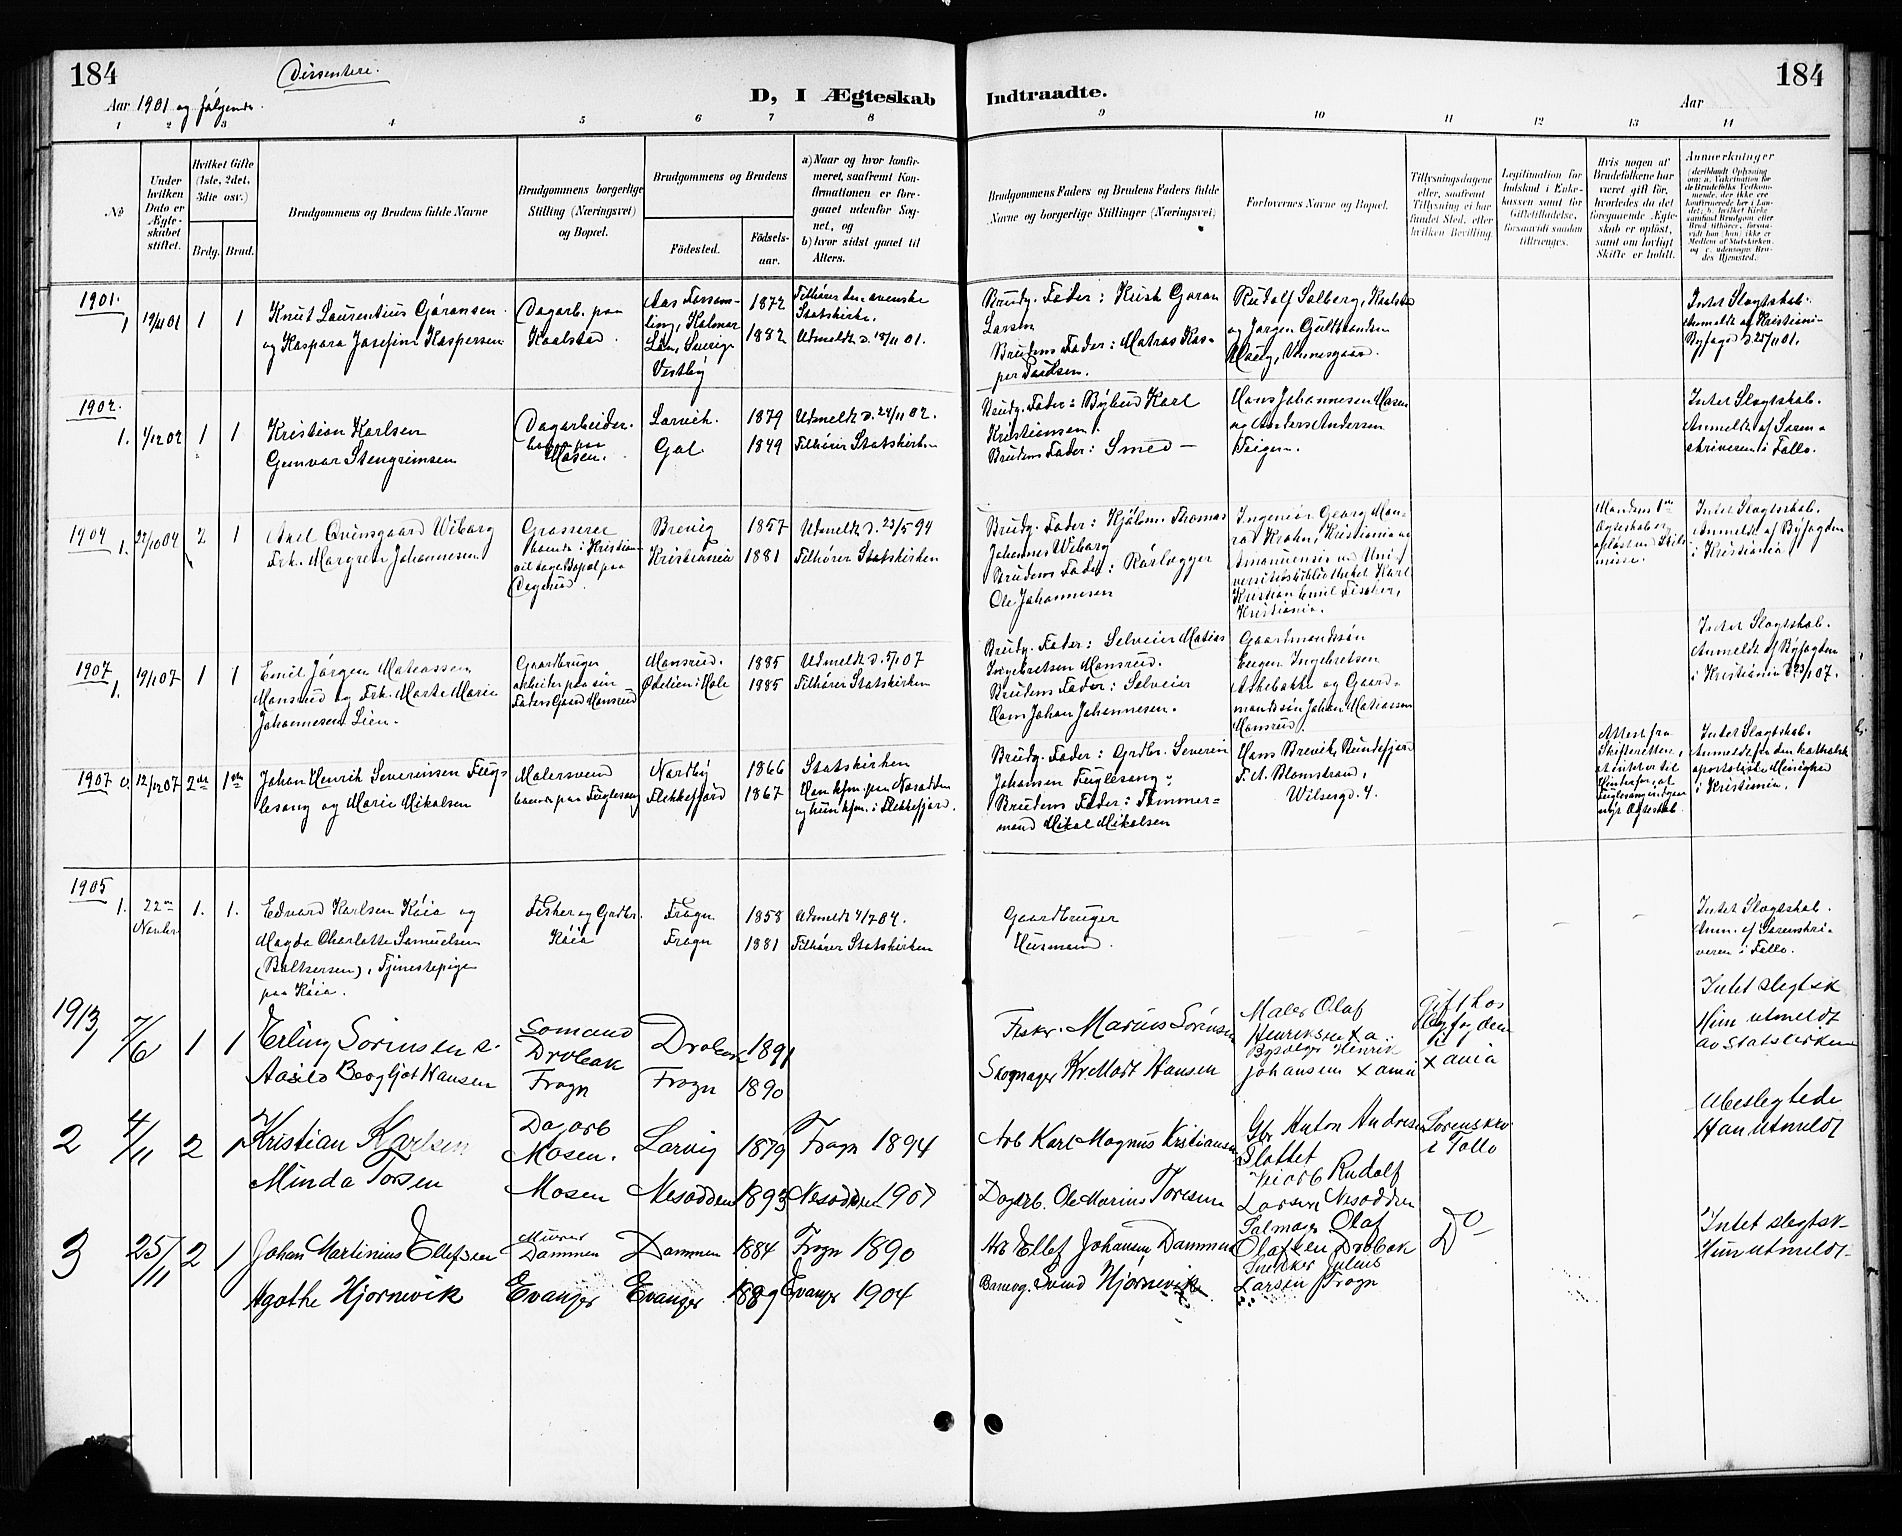 184
Dissentere.
184
Aar 1901 og følgende.
D, I Ægteskab
Indtraadte.
Aar
1 2 3 4 5 6 7 8 9 10 11 12 13 14
No
Under hvilken Dato er Ægteskabet stiftet.
Hvilket Gifte (1ste, 2det, 3die osv.)
Brdg. Brud.
Brudgommens og Brudens fulde Navne
Brudgommens borgerlige Stilling (Næringsvei) og Bopæl.
Brudgommens og Brudens
Födested.
Födsels-aar.
a) Naar og hvor konfir-
meret, saafremt Kon-
firmationen er fore-
gaaet udenfor Sog-
net, og
b) hvor sidst gaaet til
Alters.
Brudgommens Faders og Brudens Faders fulde
Navne og borgerlige Stillinger (Næringsvei)
Forlovernes Navne og Bopæl.
Tillysningsdagene
eller, saafremt
Tillysning ei har
fundet Sted, efter
hvilken Bevilling.
Legitimation for
Indskud i Enke-
kassen samt for
Giftetilladelse,
forsaavidt saadan
tiltrænges.
Hvis nogen af
Brudefolkene har
været gift før,
hvorledes da det
foregaaende Ægte-
skab er oplöst,
samt om lovligt
Skifte er holdt.
Anmerkninger
1901.
1 19/11 01 1 1
Knut Laurentius Gøransen
og Kaspara Josefine Kaspersen
Dagarb. paa
Kaalstad.
Aas Forsam-
ling, Kalmar
Län, Sverige
Vestby
1872
1882
Tilhører den svenske
Statskirke.
Udmeldt d. 18/11 01.
Brudg. Fader: Gøran
Larsen
Brudens Fader: Matias Kas-
per
Rudolf Solberg, Kaalstad
og Jørgen Gulbrandsen
Intet Slagtskab.
Anmeldt af Kristiania
Byfoged d. 25/11 01.
1902.
1. 1/12 02 1 1
Kristian Karlsen
Gunvor Stengrimsen
Dagarbeider
paa
Mosen.
Larvik.
Gol
1879
1849
Udmeldt d. 24/11 02.
Tilhører Statskirken
Brudg. Fader: Karl
Kristiansen.
Brudens Fader: Smed —
Hans Johannesen Mosen
og Anders Andersen
Teigen.
Intet Slagtskab.
Anmeldt af Soren-
skriveren i Follo.
1904
1. 22/10 04 2 1
Axel Wiborg
Frk. Margrete Johannesen
Grosserer
i Kristian
vil tage Bopæl paa
Digerud.
Brevig
Kristiania
1857
1881
Udmeldt d. 23/5 94
Tilhører Statskirken
Brudg. Fader: Hjalmar Thomas
Johannes Wiborg
Brudens Fader: Rørlægger
Ole Johannesen
Ingeniør Georg Kon-
rad Krohn, Kristiania og
Amanuensis ved Uni-
versitetsbibliotheket Karl
Kristian Emil Fischer,
Kristiania.
Mandens 1ste
Ægteskab er
opløst ved Skils-
misse.
Intet Slagtskab.
Anmeldt af Byfogden
i Kristiania
1907
1. 19/1 07 1 1
Emil Jørgen Matiassen
Monsrud og Frk. Marte Marie
Johannesen Lien.
Gaardbruger
arbeider paa sin
Faders Gaard Monsrud
Monsrud.
Ødelien i Hole
1885
1985
Udmeldt d. 5/1 07
Tilhører Statskirken
Brudg. Fader: Selveier Matias
Ingebretsen Monsrud.
Brudens Fader: Selveier
Hans Johan Johannesen.
Gaardmandssøn
Eugen Ingebretsen
Askebakke og Gaard-
mandssøn Johan Matiassen
Monsrud.
Intet Slagtskab.
Anmeldt af Byfogden
i Kristiania d. 23/1 07.
1907 12/12 07 2det 1ste
Johan Henrik Severinsen Fugle-
sang og Marie Mikalsen
Malersvend
boende paa Fuglesang
Nordby
Flekkefjord
1866
1867
Statskirken
Han kfm. paa Nesodden
og hun kfm. i Flekkefjord.
Brudg. Fader: Grdbr. Severin
Johansen Fuglesang.
Brudens Fader: Tømmer-
mand Mikal Mikalsen
Hans Brevik, Bundefjord
F. A. Blomstrand,
Wilsesgd. 4.
Attest fra
Skifteretten,
at intet er til
Hinder for, at
Fuglesang indgaar
nyt Ægteskab.
Intet Slagtskab.
Anmeldt fra den katholsk
apostoliske Menighed
i Kristiania.
1905
1. 22de Novbr 1. 1.
Edvard Karlsen Køia og
Magda Charlotte Samuelsen
(Baltsersen), Tjenestepige
paa Køia.
Fisker og Grdbr.
Køia
Frogn
Frogn
1858
1881
Udmeldt 4/7 04.
Tilhører Statskirken
Gaardbruger
Husmand.
Intet Slagtskab.
Anm. af Sorenskri-
veren i Follo.
1913
1 7/6 1 1
Erling Sørensen &
Aasild Bergljot Hansen
Sømand
Drøbak
Frogn
Drøbak
Frogn
1891
1890
Fisker. Marius Sørensen
Skomager Kr. Mart. Hansen
Maler Olaf
Henriksen X a
Henrik
Johansen X ania
Gift hos
Byfogden
i
X ania
Intet slegtsk
Hun utmeldt
av Statskirken
2 4/11 2 1
Kristian Karlsen
Minda Torsen
Dagarb
Mosen.
Mosen
Larvig
Nesodden
1879
1893
Frogn 1894
Nesodden 1907
Arb Karl Magnus Kristiansen
Dagarb. Ole Marius Toresen
Gbr Anton Andresen
Slottet
Rudolf
Larsen Nesodden
Sorenskr
i Follo
Ubeslegtede
Han utmeldt
3 25/11 2 1
Johan Martinius Ellefsen
Agathe Hjørnevik
Murer
Dammen
Evanger
Dammen
Evanger
1884
1889
Frogn 1890
Evanger 1904
Arb Ellef Johansen Dammen
Svend Hjørnevik
Salmager Olaf
Olafsen Drøbak
Snekker Julius
Larsen Frogn
Do
Intet slegtsk
Hun utmeldt